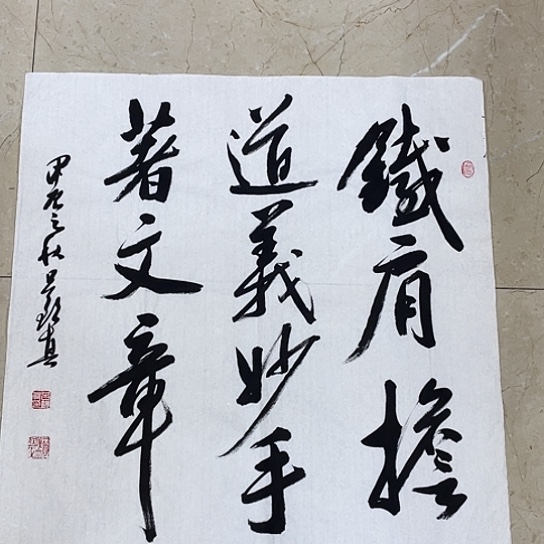 鐵肩擔
道義妙手
著文章
甲辰之秋吳彭真